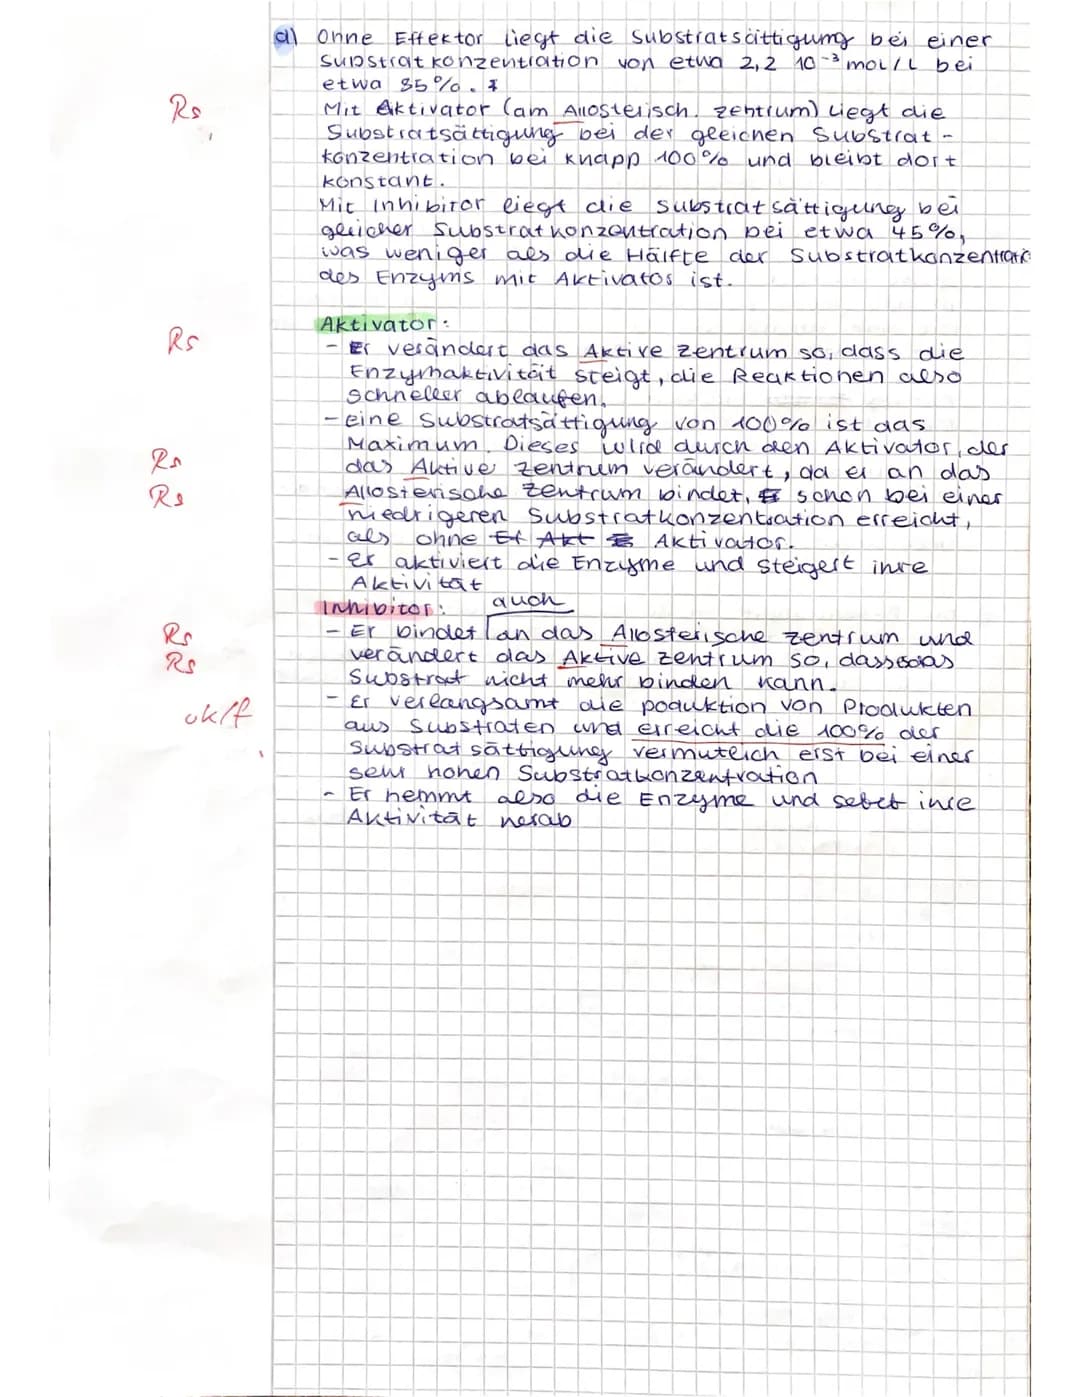 a) Ohne Effektor liegt die Substratsättigung bei einer
Substratkonzentration von etwa 2,2 10⁻³ mol/L bei
etwa 85%.
Rs Mit Aktivator (am Allosterisch. Zentrum) liegt die
Substratsättigung bei der gleichen Substrat-
konzentration bei knapp 100% und bleibt dort
konstant.
Mit Inhibitor liegt die Substratsättigung bei
gleicher Substratkonzentration bei etwa 45%,
was weniger als die Hälfte der Substratkonzentrati
des Enzyms mit Aktivators ist.
Aktivator:
Rs - Er verändert das Aktive Zentrum so, dass die
Enzymaktivität steigt, die Reaktionen also
schneller ablaufen.
- eine Substratsättigung von 100% ist das
Maximum. Dieses wird durch den Aktivator, der
Rs das Aktive Zentrum verändert, da er an das
Rs Allosterische Zentrum bindet, schon bei einer
niedrigeren Substratkonzentration erreicht,
als ohne Ef Akt Aktivator.
- er aktiviert die Enzyme und steigert ihre
Aktivität
Inhibitor: auch
Rs - Er bindet an das Allosterische Zentrum und
Rs verändert das Aktive Zentrum so, dass das
Substrat nicht mehr binden kann.
uk/f - Er verlangsamt die poduktion von Produkten
aus Substraten und erreicht die 100% der
Substratsättigung vermutlich erst bei einer
sehr hohen Substratkonzentration
- Er hemmt also die Enzyme und setzt ihre
Aktivität herab